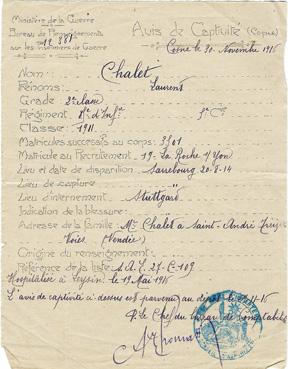 Ministère de la Guerre
Bureau de Renseignements
sur les Prisonniers de Guerre
Avis de Captivité (Copie)
Cosne le 30 Novembre 1916
Nom: Chalet
Prénoms: Laurent
Grade 2e classe
Régiment 8e d'Infie 3e Cie
Classe: 1911
Matricules successifs au corps: 3801
Matricule au Recrutement 19- La Roche s/Yon
Lieu et date de disparition Sarrebourg 20-8-14
Lieu de capture "
Lieu d'internement Stuttgard
Indication de la blessure:
Adresse de la Famille: Mr Chalet à Saint-André
Voies (Vendée)
Origine du renseignement:
Référence de la liste
Hospitalisé à Leysin le 19 Mai 1916
L'avis de captivité ci-dessus est parvenu au dépôt le
P. le Chef du bureau de Comptabilité